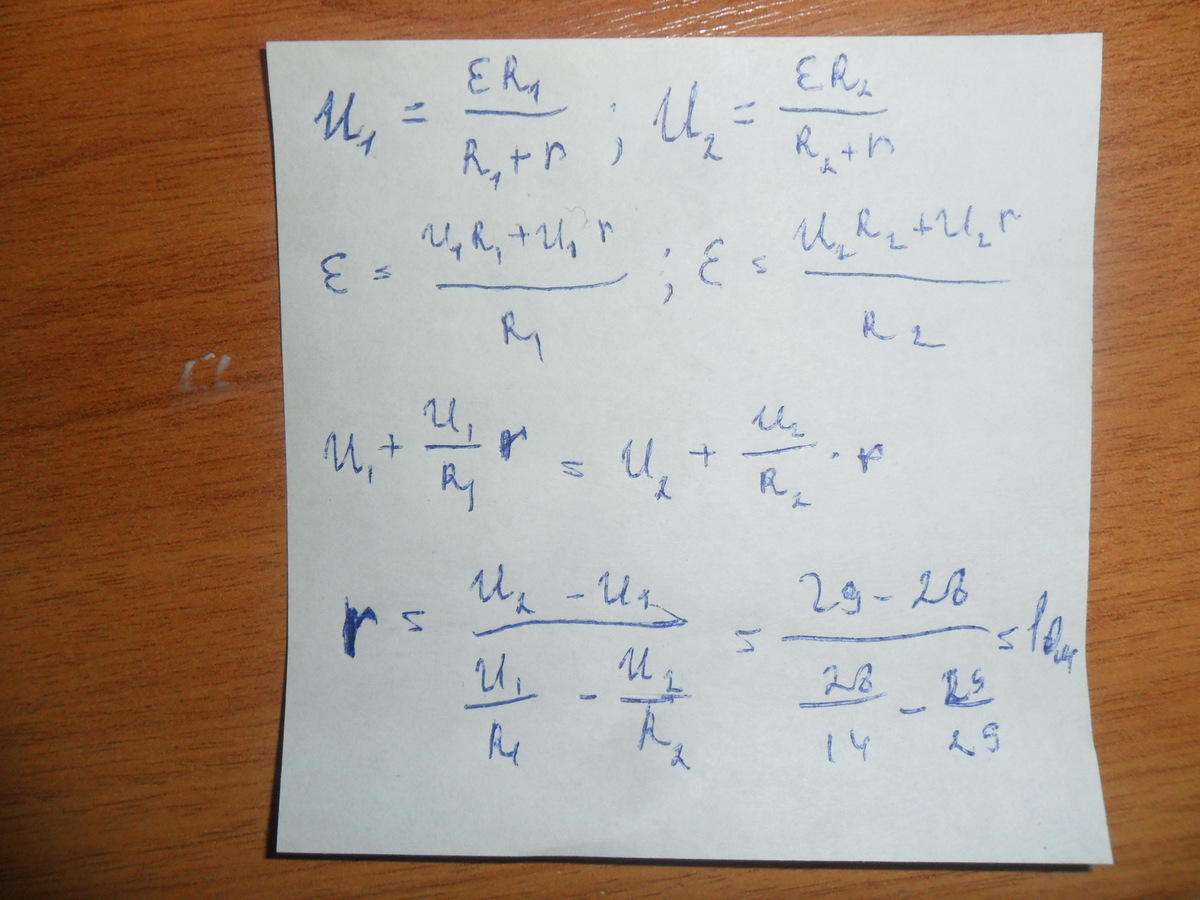 U₁ = εR₁/(R₁+r) ; U₂ = εR₂/(R₂+r)
ε = (U₁R₁+U₁r)/R₁ ; ε = (U₂R₂+U₂r)/R₂
U₁ + (U₁/R₁) r = U₂ + (U₂/R₂) · r
r = (U₂ - U₁)/(U₁/R₁ - U₂/R₂) = (29 - 28)/(28/14 - 29/29) = 1 Ом